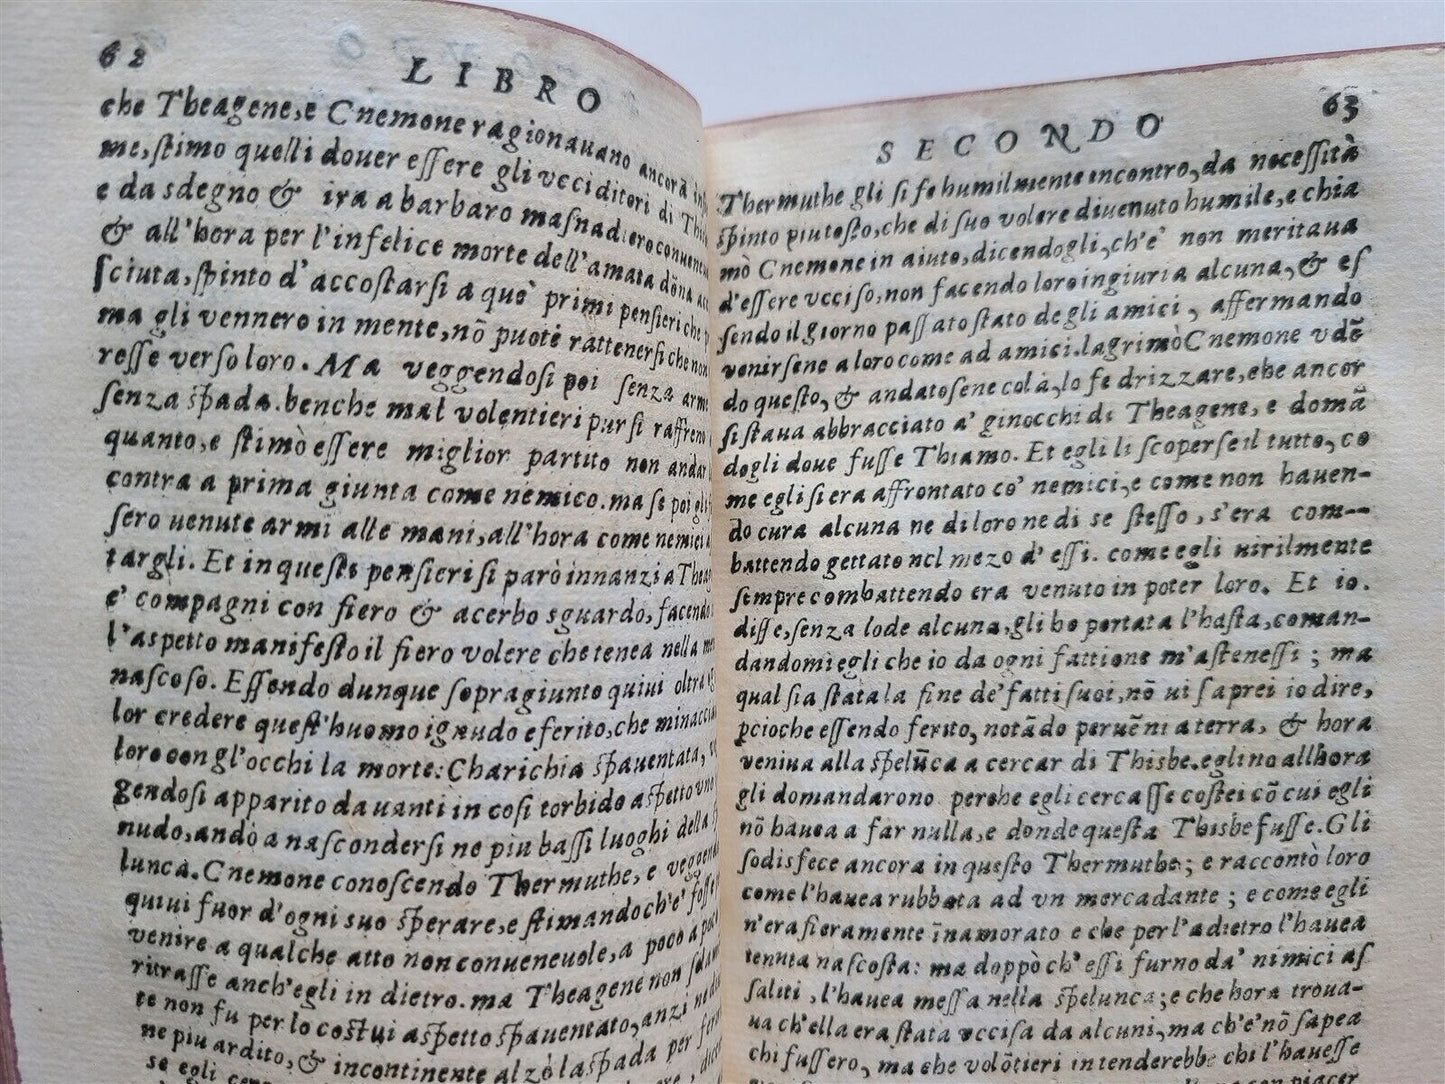 62
LIBRO
che Theagene, e Cnemone ragionauano ancora
me, stimo quelli douer essere gli vcciditori di
e da sdegno & ira a barbaro masnadiero
& all'hora per l'infelice morte dell'amata dōna
sciuta, spinto d'accostarsi a que' primi pensieri che
ma gli vennero in mente, nō puote rattenersi che non
resse verso loro. Ma veggendosi poi senza arme
senza spada. benche mal volentieri pur si raffreno
quanto, e stimò essere miglior partito non andar
contra a prima giunta come nemico. ma se poi gli
sero uenute armi alle mani, all'hora come nemici
targli. Et in questi pensieri si parò innanzi a
e' compagni con fiero & acerbo sguardo, facendo
l'aspetto manifesto il fiero volere che tenea nella
nascoso. Essendo dunque sopragiunto quiui oltra
lor credere quest'huomo ignudo e ferito, che
loro con gl'occhi la morte: Charichia spauentata,
gendosi apparito dauanti in cosi torbido aspetto vno
nudo, andò a nascondersi ne piu bassi luoghi della
luncà. Cnemone conoscendo Thermuthe, e
quiui fuor d'ogni suo sperare, e stimando ch'e'
venire a qualche atto non conueneuole, a poco a
ritrasse anch'egli in dietro. ma Theagene non
te non fu per lo costui aspetto spauentato, anzi
ne piu ardito, & incontinente alzò la spada per
se egli
63
SECONDO
Thermuthe gli si fe humilmente encontro, da necessità
spinto piutosto, che di suo volere diuenuto humile, e chia
mò Cnemone in aiuto, dicendogli, ch'e' non meritaua
d'essere vcciso, non facendo loro ingiuria alcuna, & es
sendo il giorno passato stato de gli amici, affermando
venirsene a loro come ad amici. lagrimò Cnemone vdē
do questo, & andatosene colà, lo fe drizzare, che ancor
si staua abbracciato a' ginocchi di Theagene, e domā
dogli doue fusse Thiamo. Et egli li scoperse il tutto, co
me egli si era affrontato co' nemici, e come non hauen-
do cura alcuna ne di loro ne di se stesso, s'era com--
battendo gettato nel mezo d'essi. come egli uirilmente
sempre combattendo era venuto in poter loro. Et io.
disse, senza lode alcuna, gli ho portata l'hasta, coman-
dandomi egli che io da ogni fattione m'astenessi; ma
qual sia stata la fine de' fatti suoi, nō ui saprei io dire,
pcioche essendo ferito, notādo peruēni a terra, & hora
veniua alla spelūca a cercar di Thisbe. eglino allhora
gli domandarono perche egli cercasse costei cō cui egli
nō hauea a far nulla, e donde questa Thisbe fusse. Gli
sodisfece ancora in questo Thermuthe; e raccontò loro
come l'hauea rubbata ad vn mercadante; e come egli
n'era fieramente īnamorato e che per l'adietro l'hauea
tenuta nascosta: ma doppò ch'essi furno da' nimici as
saliti, l'hauea messa nella spelunca; e che hora troua-
ua ch'ella era stata vccisa da alcuni, ma ch'e' nō sapea
chi fussero, ma che volōtieri intenderebbe chi l'hauesse